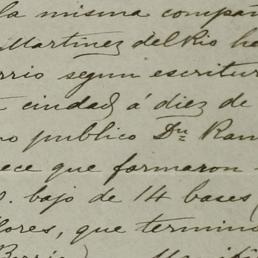 la misma compañ
Martinez del Rio he
rrio segun escritur
ciudad á diez de
o publico Dn Ram
ece que formaron
. bajo de 14 bases (
lores, que termino
Berrio)